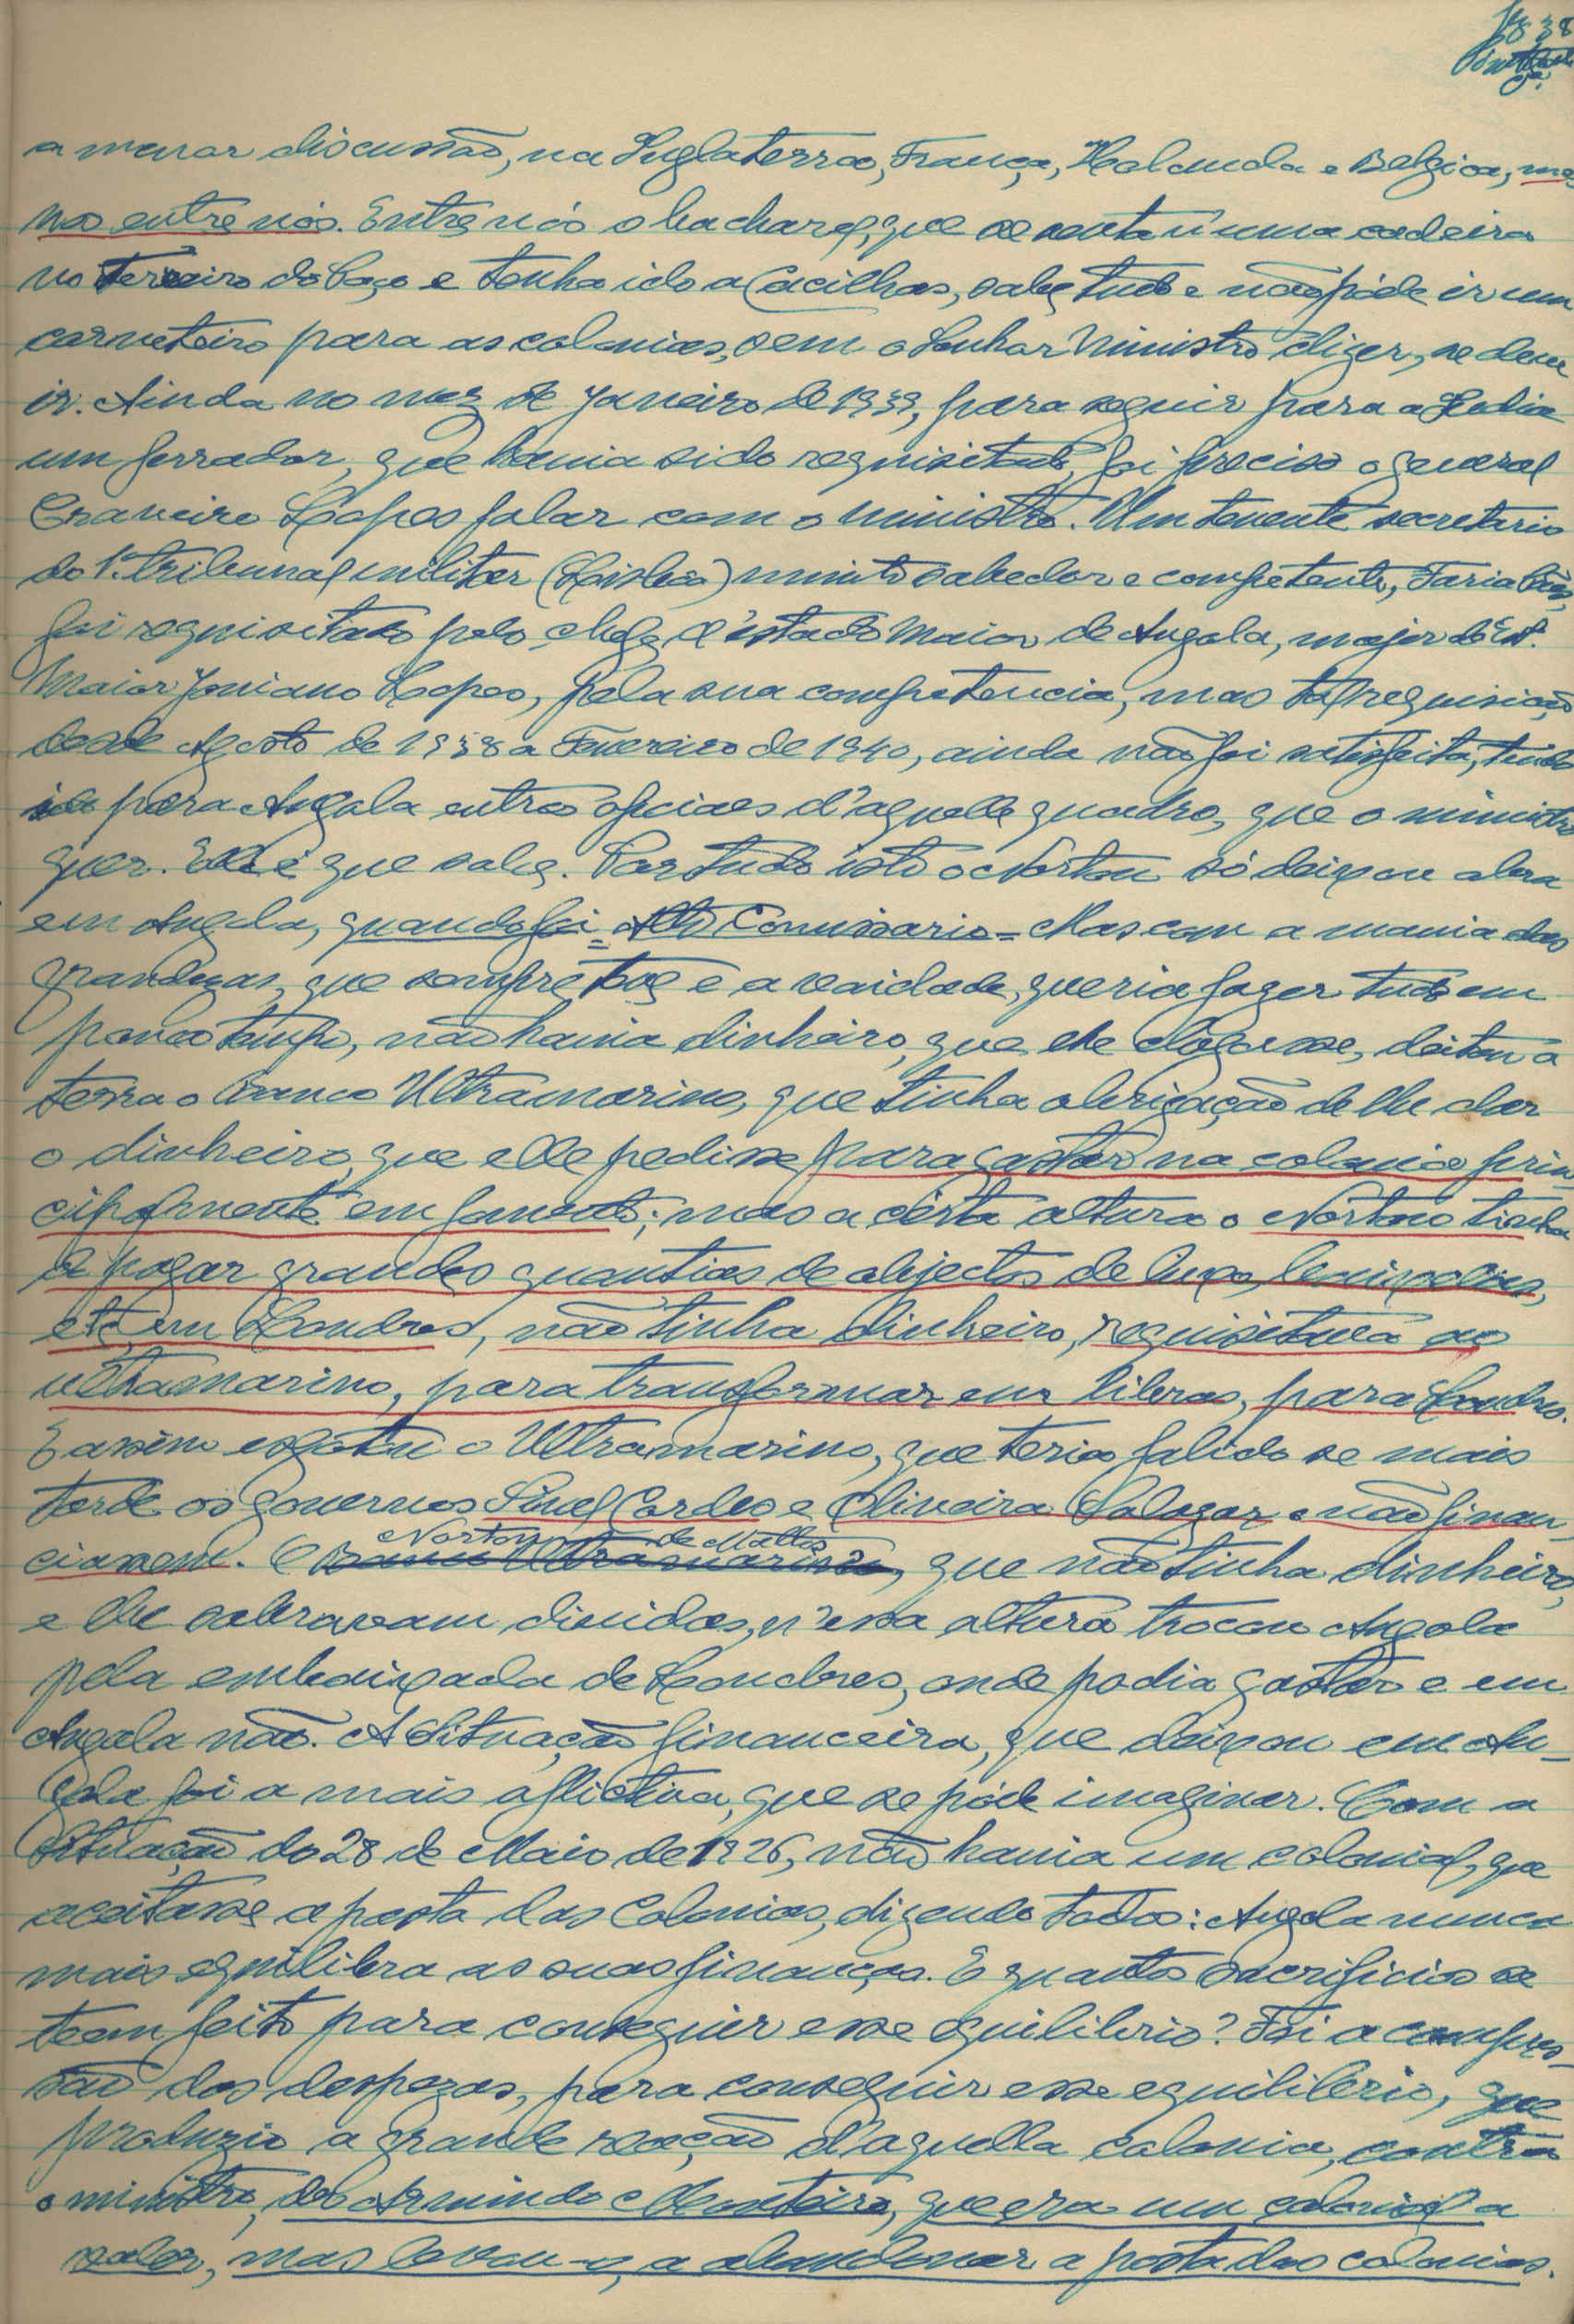 a menor discussão, na Inglaterra, França, Holanda e Belgica, me-
nos entre nós. Entre nós o bacharel, que se senta n'uma cadeira
no terreiro do Paço e tenha ido a Cacilhas, sabe tudo e não póde ir um
corneteiro para as colonias, sem o Senhor Ministro dizer, se deve
ir. Ainda no mez de Janeiro de 1939, para seguir para a India
um ferrador, que havia sido requisitado, foi preciso o general
Craveiro Lopes falar com o ministro. Um tenente secretario
do 1º. tribunal militar (Lisboa) muito sabedor e competente, Faria
foi requisitado pelo chefe d'estado maior de Angola, major do Est.
Maior Lopes, pela sua competencia, mas tal requisição
desde Agosto de 1938 a Fevereiro de 1940, ainda não foi satisfeita, tendo
ido para Angola outros oficiaes d'aquelle quadro, que o ministro
quer. Elle é que sabe. Por tudo isto o Norton só deixou obra
em Angola, quando foi = Alto Comissario = Mas com a mania das
grandezas, que sempre teve e a vaidade, queria fazer tudo em
pouco tempo, não havia dinheiro, que lhe chegasse, deitou a
terra o Banco Ultramarino, que tinha obrigação de lhe dar
o dinheiro, que elle pedisse para gastar na colonia prin-
cipalmente em fomento; mas a certa altura o Norton tinha
de pagar grandes quantias de objectos de luxo,
etc, em Londres, não tinha dinheiro, requisitava ao
ultramarino, para transformar em libras, para Londres.
E assim esgotou o Ultramarino, que teria falido se mais
tarde os governos Sinel Cordes e Oliveira Salazar o não finan-
ciassem. O Norton de Mattos, que não tinha dinheiro,
e lhe sobravam dividas, n'essa altura trocou Angola
pela embaixada de Londres, onde podia gastar e em
Angola não. A Situação financeira, que deixou em An-
gola foi a mais aflictiva, que se póde imaginar. Com a
Situação do 28 de Maio de 1926, não havia um colonial, que
aceitasse a pasta das Colonias, dizendo todos: Angola nunca
mais equilibra as suas finanças. E quantos sacrificios se
teem feito para conseguir esse equilibrio? Foi a compres-
são das despezas, para conseguir esse equilibrio, que
produzio a grande reação d'aquella colonia, contra
o ministro, do Armindo Monteiro, que era um colonial a
valer, mas levou-o, a abandonar a pasta das colonias.